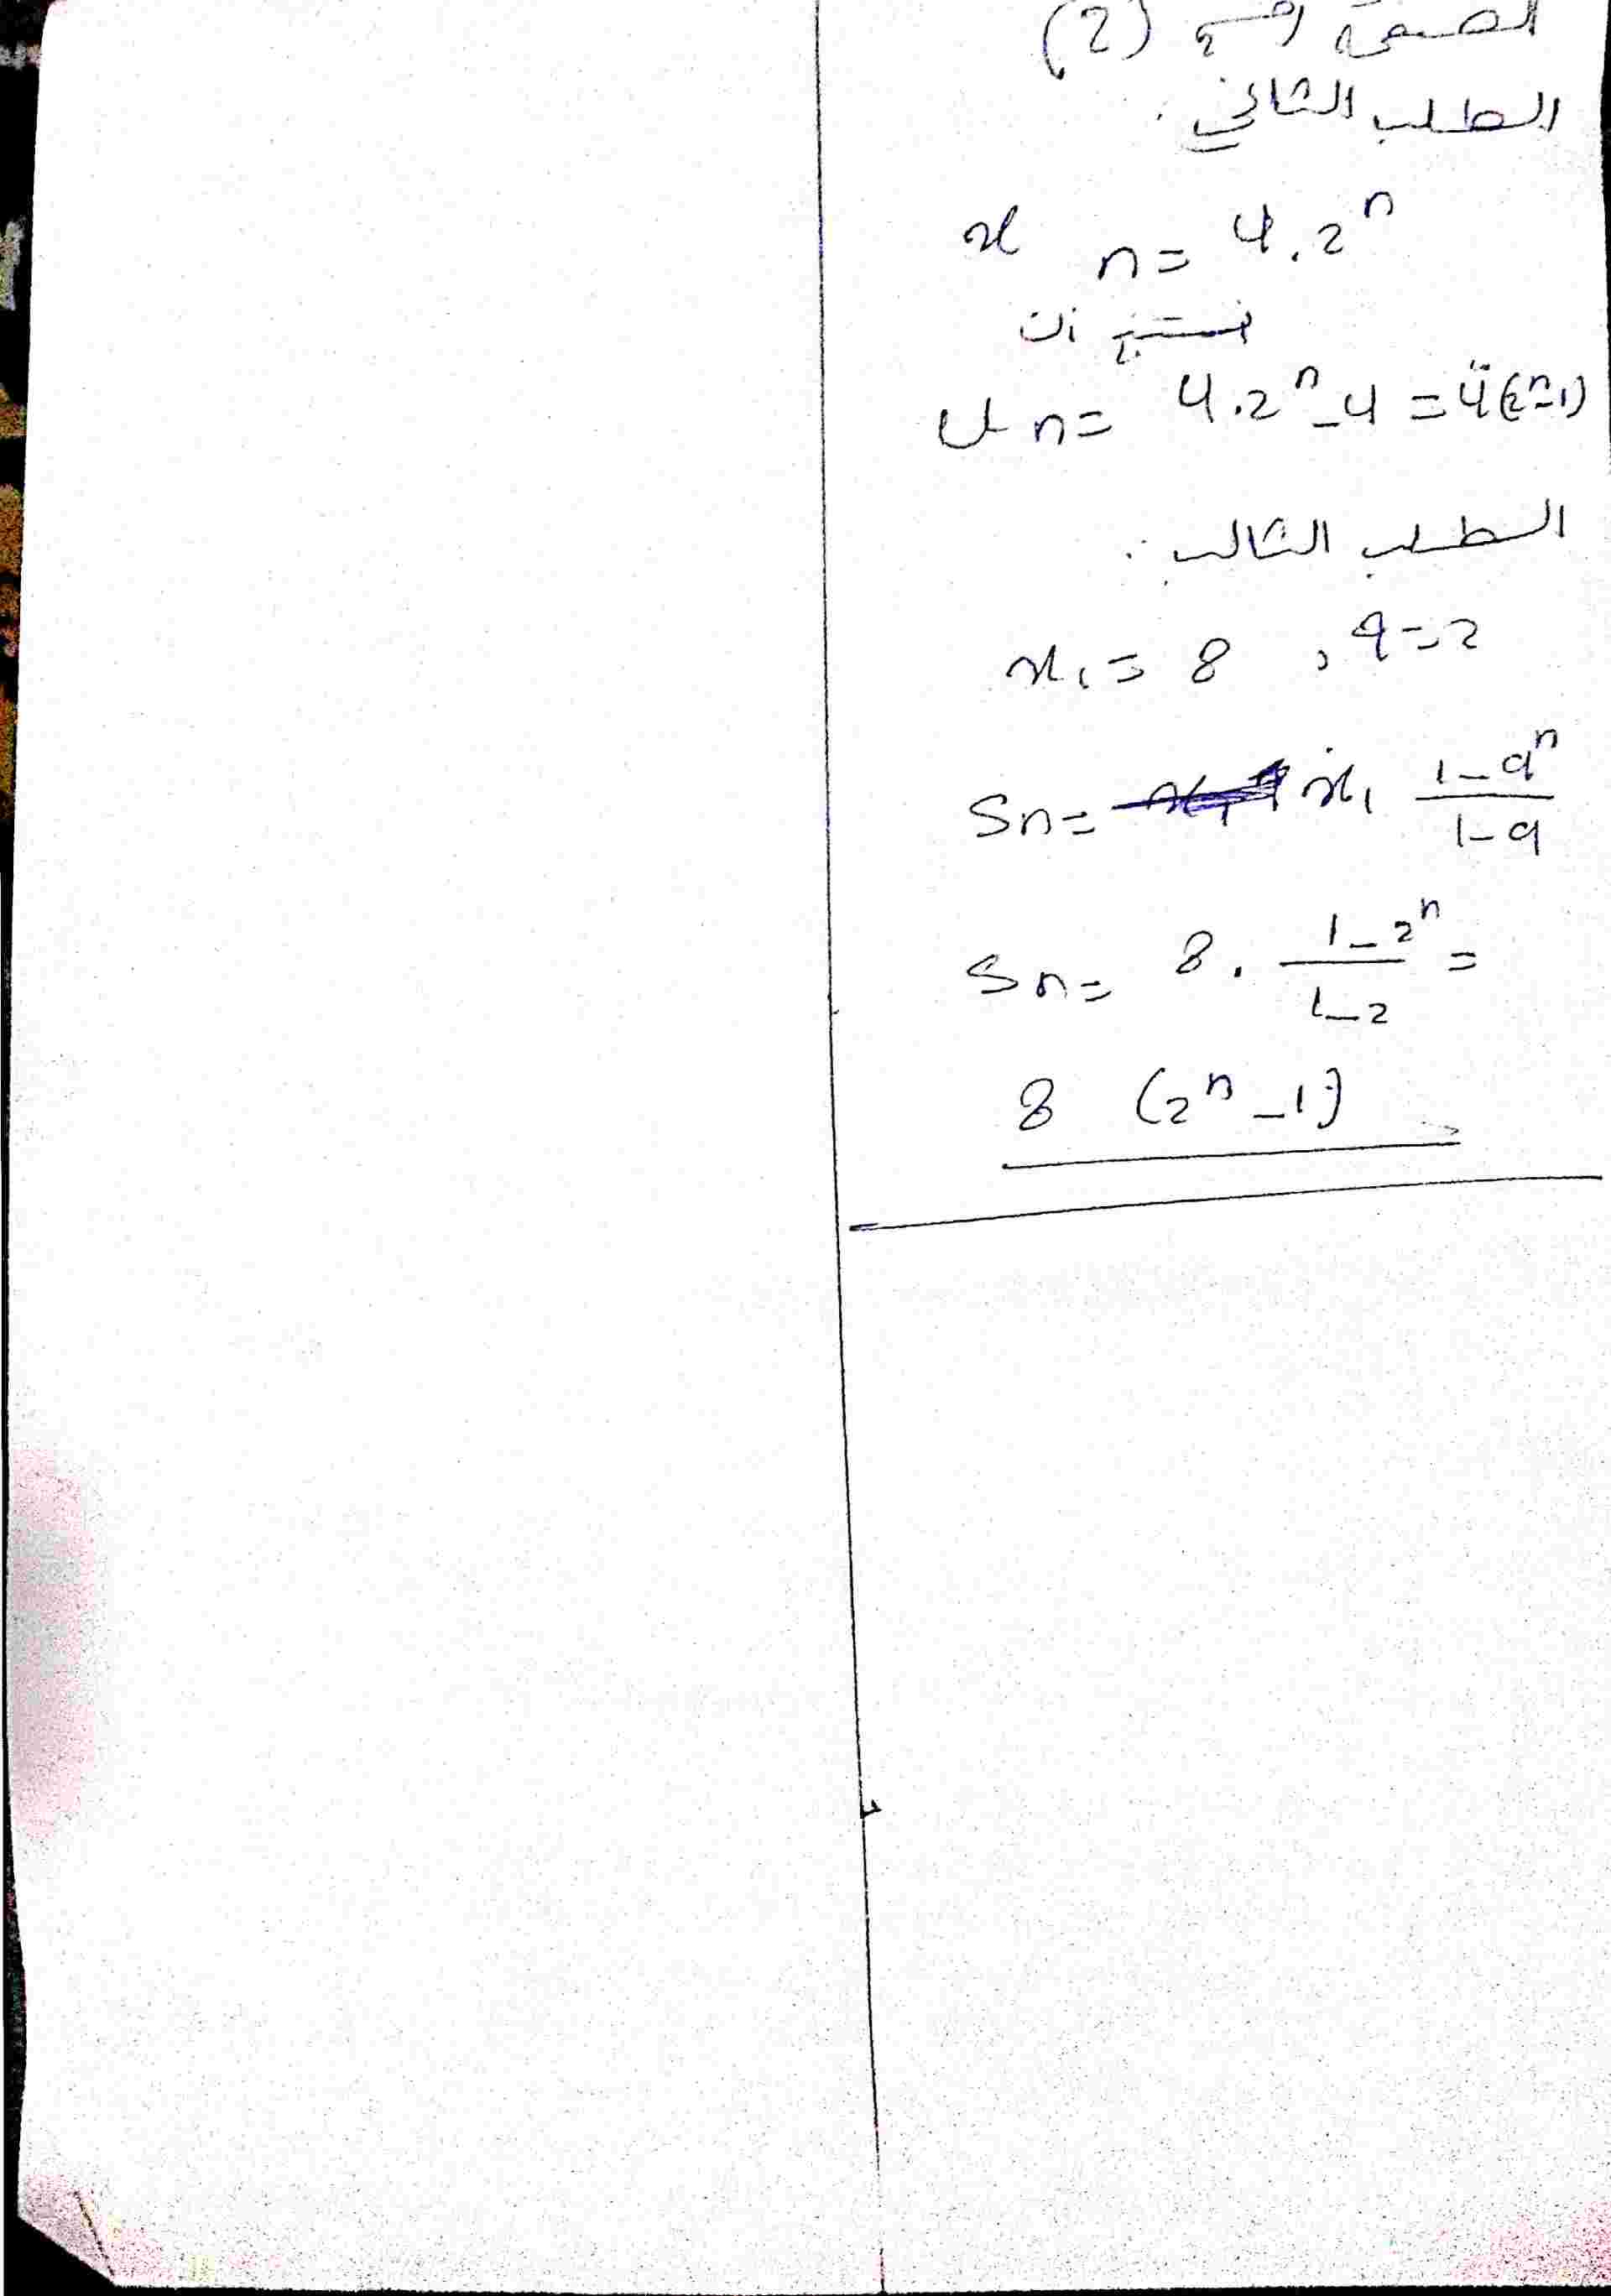 الصفحة رقم (2)
الطلب الثاني:
x n = 4.2^n
نستنتج ان
u n = 4.2^n - 4 = 4(2^n-1)
الطلب الثالث:
x1 = 8 , q = 2
Sn = x1 (1-q^n)/(1-q)
Sn = 8 . (1-2^n)/(1-2) =
8 (2^n - 1)